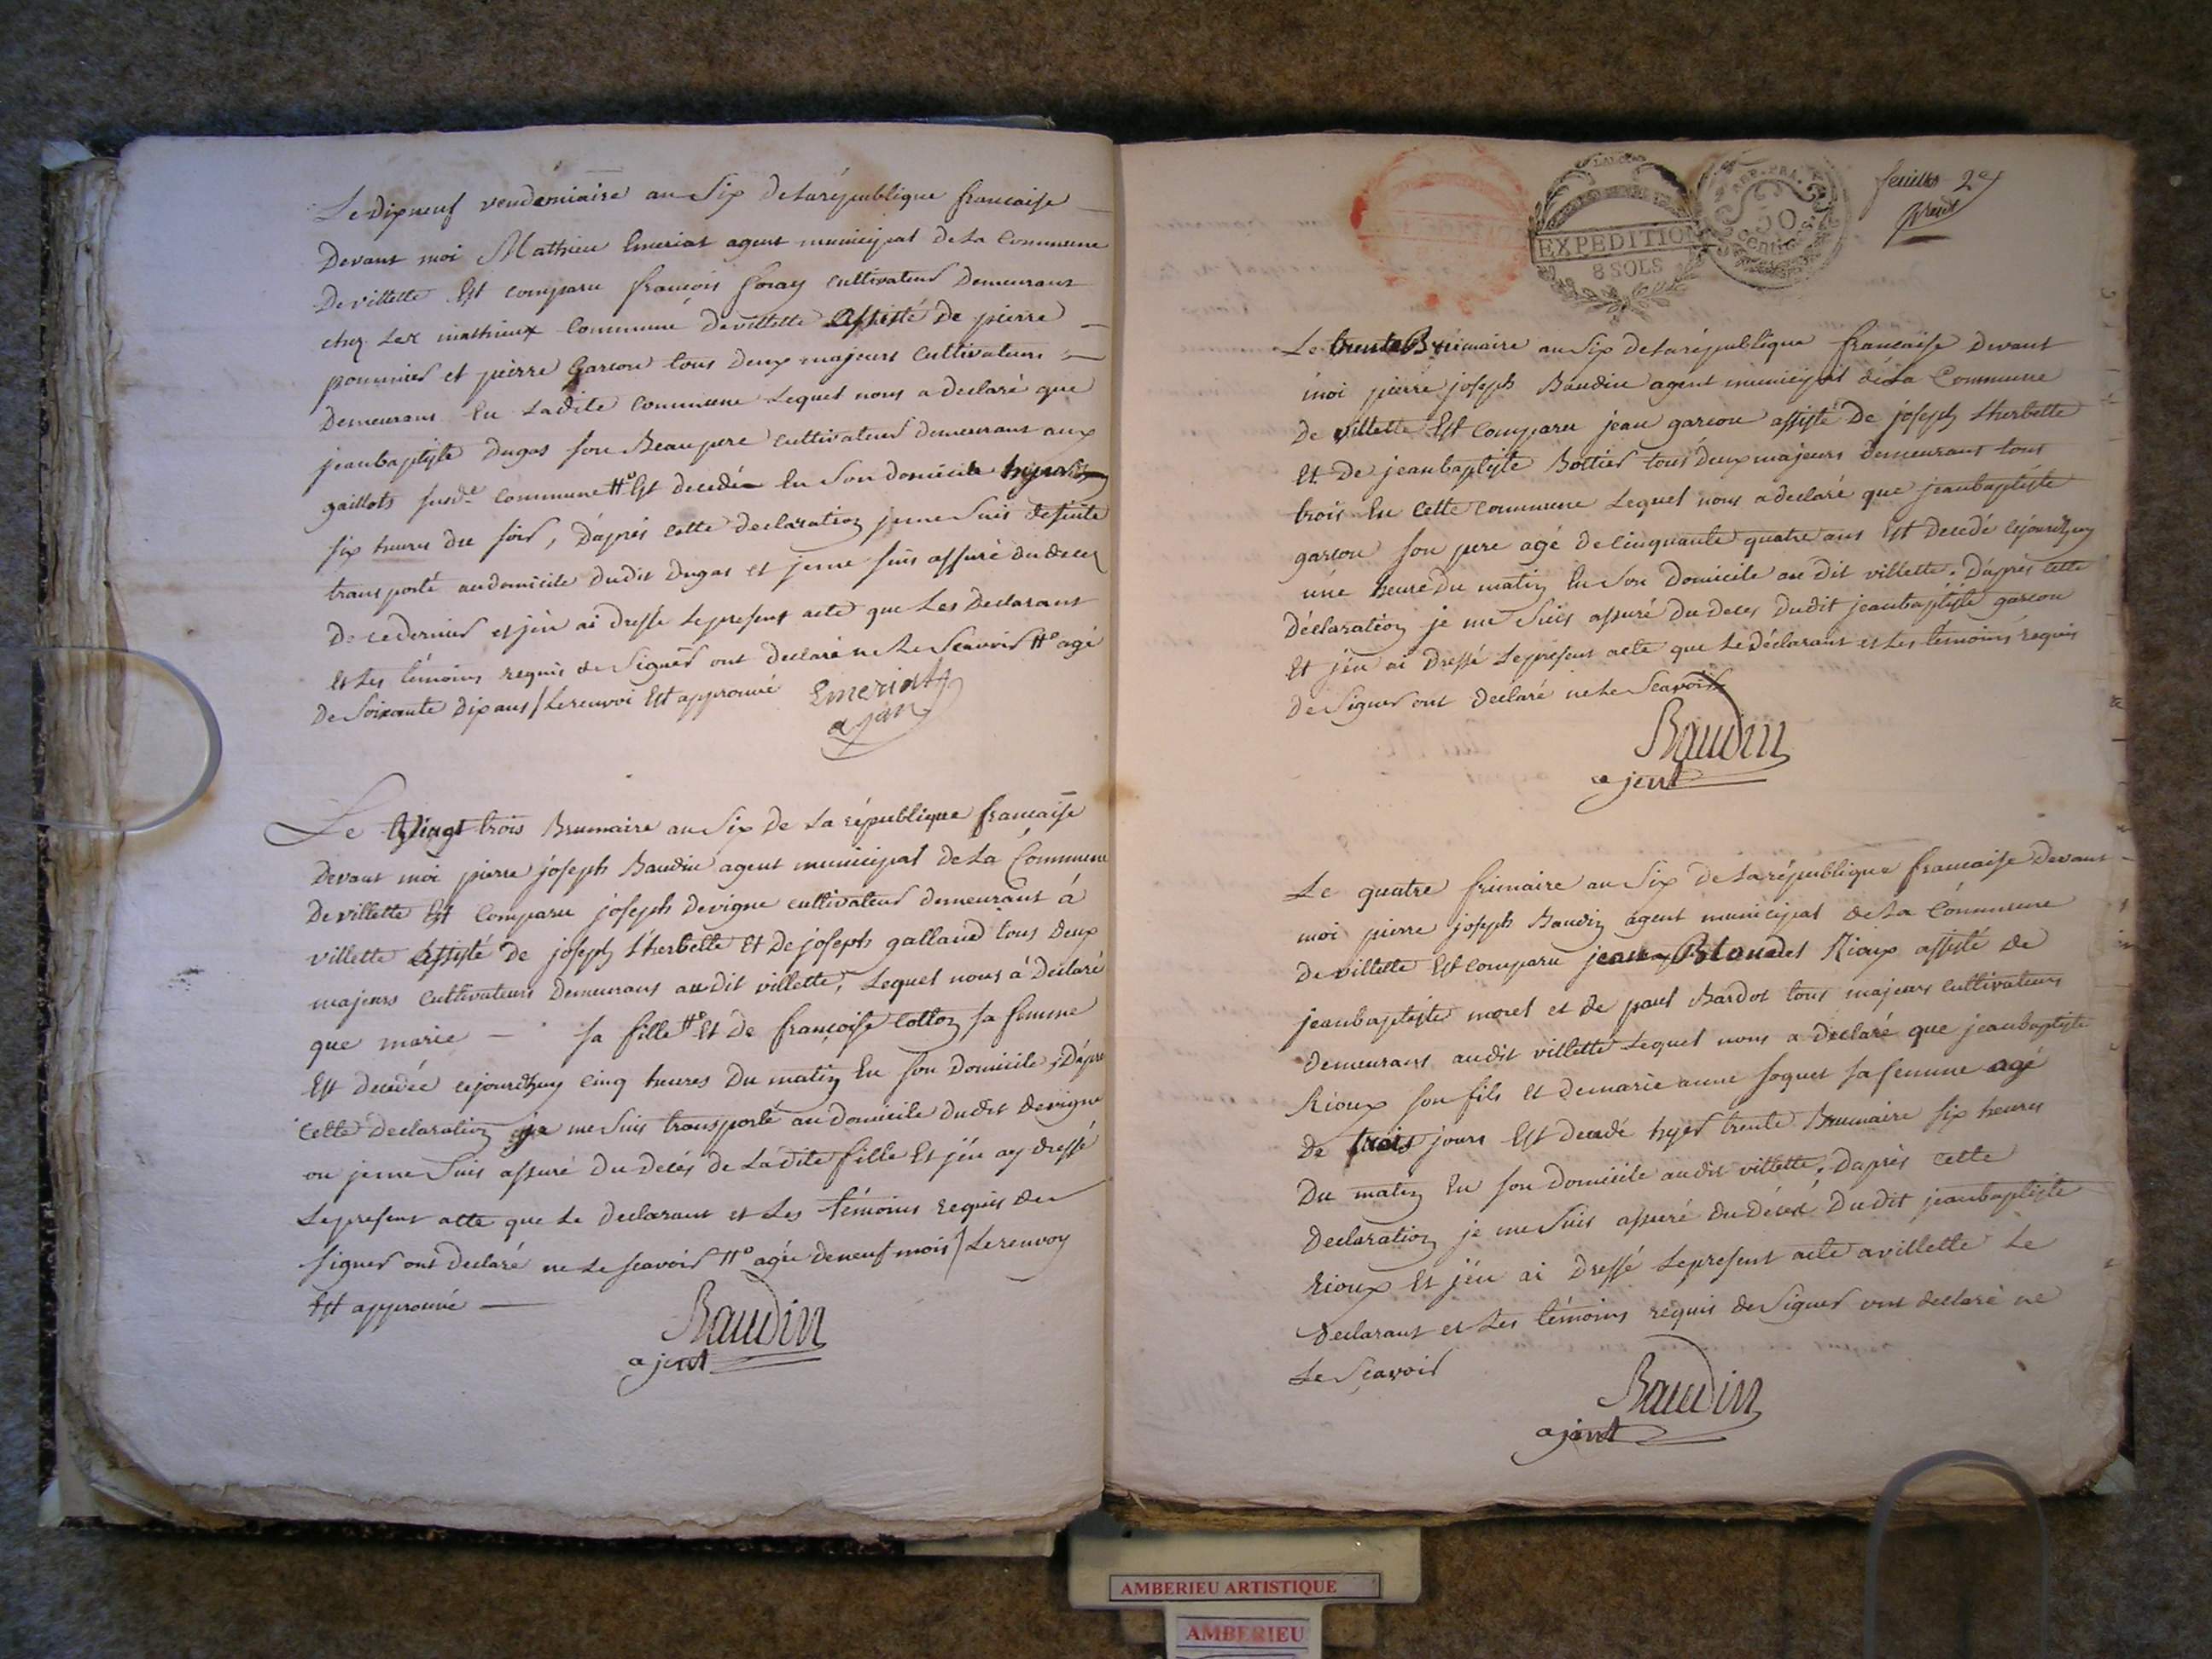 Le dix neuf vendémiaire an Six de la république francaise
Devant moi Mathieu Emeriat agent municipal de la Commune
De villette Est comparu francois foray cultivateur Demeurant
chez Les mathieux Commune de villette Assisté de pierre
pommier et pierre Garcon tous deux majeurs Cultivateurs
Demeurans En Ladite Commune Lequel nous a declaré que
jeanbaptiste dugas son Beaupere cultivateur demeurant aux
gaillots susd.e commune #° Est decedé En Son domicile
six heures du soir, D'après cette declaration je me Suis de suite
transporté au domicile dudit dugas et je me suis assuré du decès
De ce dernier et j'en ai dressé Le present acte que Les Declarant
et Les témoins requis de Signer ont declaré ne Le Scavoir #° agé
De Soixante dix ans / Le renvoi Est approuvé Emeriat
ajan
Le Vingt trois Brumaire an Six De La république francaise
Devant moi pierre joseph Baudin agent municipal De La Commune
De villette Est Comparu joseph devigne cultivateur demeurant à
villette Assisté De joseph L'herbette Et De joseph galland tous Deux
majeurs Cultivateurs Demeurans au dit villette, Lequel nous à Déclaré
que marie — sa fille #° Et De françoise Cotton sa femme
Est decedée cejourdhuy cinq heures Du matin En son Domicile, D'apres
cette declaration je me Suis transporté au domicile dudit devigne
ou je me Suis assuré Du decés de Ladite fille Et j'en ay dressé
Le present acte que Le declarant et Les témoins requis de
signer ont declaré ne Le scavoir #° agée de neuf mois / Le renvoy
Est approuvé —
Baudin
ajent
EXPEDITION
8 SOLS
50
Centimes
feuillet 2e
Le trente Brumaire an Six de la république francaise Devant
moi pierre joseph Baudin agent municipal de La Commune
De villette Est Comparu jean garcon assisté De joseph Lherbette
Et De jeanbaptiste Bottier tous deux majeurs demeurans tous
trois En Cette commune Lequel nous a declaré que jeanbaptiste
garcon son pere agé de Cinquante quatre ans Est Decedé cejourdhuy
une heure Du matin En Son Domicile au Dit villette. D'après cette
Déclaration je me Suis assuré Du deces Dudit jeanbaptiste garcon
Et j'en ai Dressé Le present acte que Le déclarant et Les témoins requis
De Signer ont Declaré ne Le Scavoir
Baudin
ajent
Le quatre frimaire an Six De La république francaise Devant
moi pierre joseph Baudin agent municipal de La Commune
De villette Est comparu Rioux assisté de
jeanbaptiste morel et de paul Bardot tous majeurs cultivateurs
demeurans audit villette Lequel nous a declaré que jeanbaptiste
Rioux son fils Et De marie anne soquet sa femme agé
De trois jours Est decedé hyer trente Brumaire six heures
Du matin En son Domicile audit villette. D'après cette
Declaration je me Suis assuré du décès Dudit jeanbaptiste
Rioux Et j'en ai Dressé Le present acte a villette Le
Declarant et Les témoins requis de Signer ont declaré ne
Le Sçavoir
Baudin
ajent
AMBERIEU ARTISTIQUE
AMBERIEU